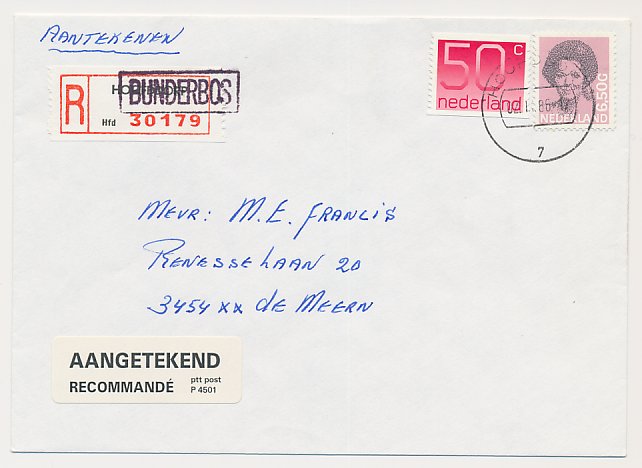 AANTEKENEN
R
HOOFDDORP
BUNDERBOS
Hfd 30179
50 c
nederland
6.50G
NEDERLAND
7
MEVR: M.E. FRANCIS
RENESSELAAN 20
3454XX DE MEERN
AANGETEKEND
RECOMMANDÉ ptt post
P 4501